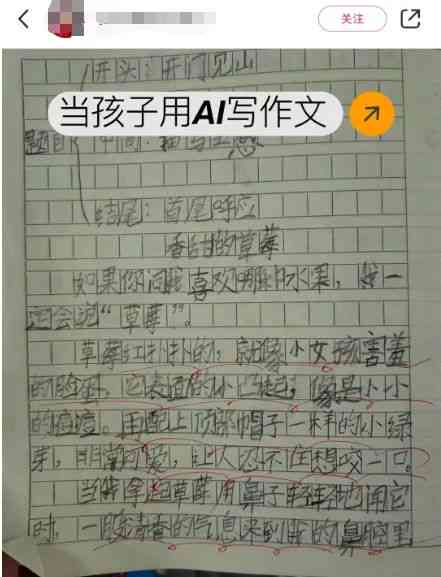 关注
开头：开门见山
当孩子用AI写作文
题目 中间：描写

结尾：首尾呼应
香甜的草莓
如果你问我喜欢哪种水果，我一
定会说“草莓”。
草莓红扑扑的，就像小女孩害羞
的脸蛋，它表面的小凸起，像是小小
的痘痘。再配上顶部帽子一样的小绿
芽，非常可爱，让人忍不住想咬一口。
当我拿起草莓用鼻子轻轻地闻它
时，一股清香的气息来到我的鼻腔里